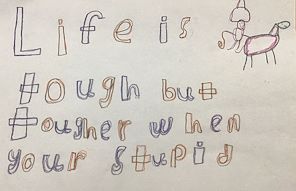 Life is
tough but
tougher when
your stupid